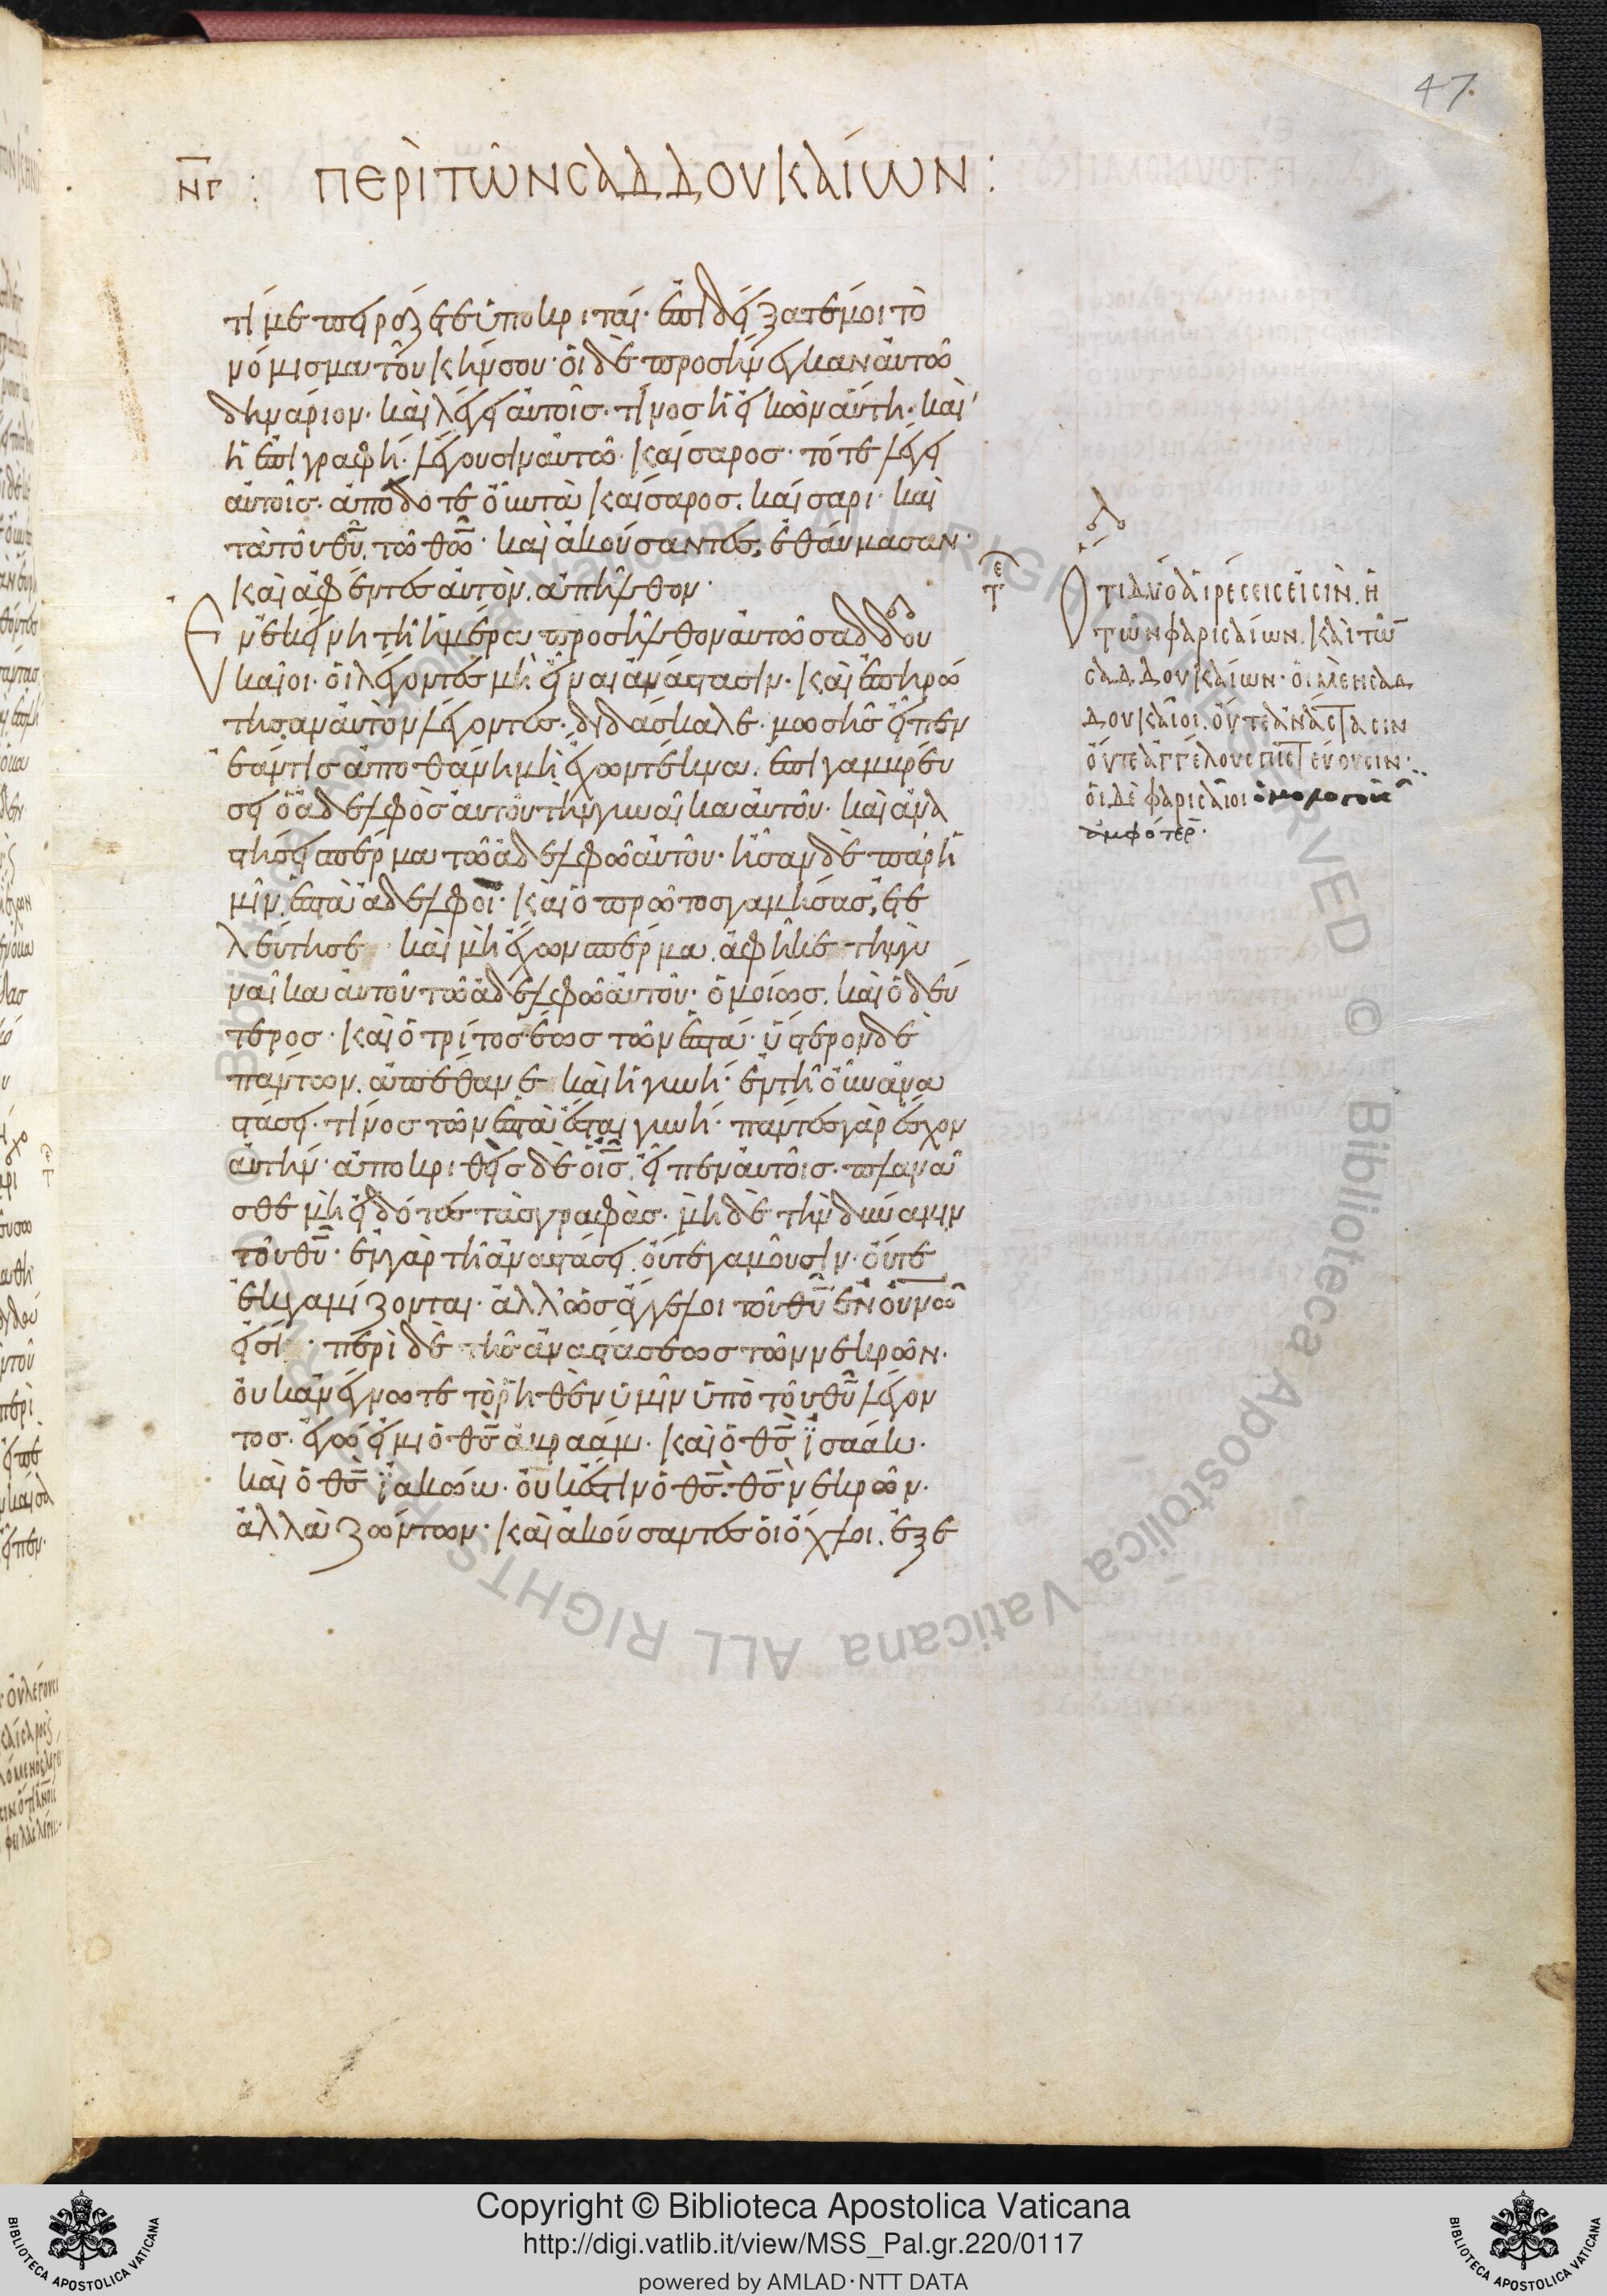 47.
ΝΓ : ΠΕΡῚ ΤΩ͂Ν ΣΑΔΔΟΥΚΑΊΩΝ :
τί με πειράζετε ὑποκριταί· ἐπιδείξατέ μοι τὸ
νόμισμα τοῦ κήνσου· οἱ δὲ προσήνεγκαν αὐτῶ
δηνάριον· καὶ λέγει αὐτοῖς· τίνος ἡ εἰκὼν αὕτη· καὶ
ἡ ἐπιγραφή· λέγουσιν αὐτῶ· καίσαρος· τότε λέγει
αὐτοῖς· ἀπόδοτε οὖν τὰ καίσαρος. καίσαρι· καὶ
τὰ τοῦ θῦ. τῶ θῶ· καὶ ἀκούσαντες, ἐθαύμασαν·
καὶ ἀφέντες αὐτὸν. ἀπῆλθον·
Ἐν ἐκείνη τῆ ἡμέρα προσῆλθον αὐτῶ σαδδου
καῖοι· οἱ λέγοντες μὴ εἶναι ἀνάστασιν· καὶ ἐπηρώ
τησαν αὐτὸν λέγοντες· διδάσκαλε· μωσῆς εἶπεν
ἐάν τις ἀποθάνη μὴ ἔχων τέκνα. ἐπιγαμβρεύ
σει ὁ ἀδελφὸς αὐτοῦ τὴν γυναῖκα αὐτοῦ· καὶ ἀνα
στήσει σπέρμα τῶ ἀδελφῶ αὐτοῦ· ἦσαν δὲ παρ' ἡ
μῖν. ἑπτὰ ἀδελφοί· καὶ ὁ πρῶτος γαμήσας, ἐτε
λεύτησε καὶ μὴ ἔχων σπέρμα. ἀφῆκε τὴν γυ
ναῖκα αὐτοῦ τῶ ἀδελφῶ αὐτοῦ· ὁμοίως. καὶ ὁ δεύ
τερος· καὶ ὁ τρίτος ἕως τῶν ἑπτά· ὕστερον δὲ
πάντων. ἀπέθανε καὶ ἡ γυνή· ἐν τῆ οὖν ἀνα
στάσει· τίνος τῶν ἑπτὰ ἔσται γυνή· πάντες γὰρ ἔσχον
αὐτήν· ἀποκριθεὶς δὲ ὁ ις. εἶπεν αὐτοῖς· πλανᾶ
σθε μὴ εἰδότες τὰς γραφὰς· μὴ δὲ τὴν δύναμιν
τοῦ θῦ· ἐν γὰρ τῆ ἀναστάσει. οὔτε γαμοῦσιν· οὔτε
ἐκγαμίζονται· ἀλλ' ὡς ἄγγελοι τοῦ θῦ ἐν οὐνῶ
εἰσί· περὶ δὲ τῆς ἀναστάσεως τῶν νεκρῶν·
οὐκ ἀνέγνωτε τὸ ῥηθὲν ὑμῖν ὑπὸ τοῦ θῦ λέγον
τος· ἐγώ εἰμι ὁ θς ἀβραάμ· καὶ ὁ θς ἰσαάκ·
καὶ ὁ θς ἰακώβ· οὐκ ἔστιν ὁ θς. θς νεκρῶν·
ἀλλὰ ζώντων· καὶ ἀκούσαντες οἱ ὄχλοι. ἐξε
τε
Ὅτι δύο αἱρέσεις εἰσὶν. ἡ
τῶν φαρισαίων. καὶ τῶ
σαδδουκαίων· οἱ μὲν σαδ
δουκαῖοι. οὔτε ἀνάστασιν
οὔτε ἀγγέλους πιστεύουσιν·
οἱ δὲ φαρισαῖοι ὁμολογοῦσι
ἀμφότερ·
Copyright © Biblioteca Apostolica Vaticana
http://digi.vatlib.it/view/MSS_Pal.gr.220/0117
powered by AMLAD·NTT DATA
BIBLIOTECA APOSTOLICA VATICANA
BIBLIOTECA APOSTOLICA VATICANA
© Biblioteca Apostolica Vaticana ALL RIGHTS RESERVED